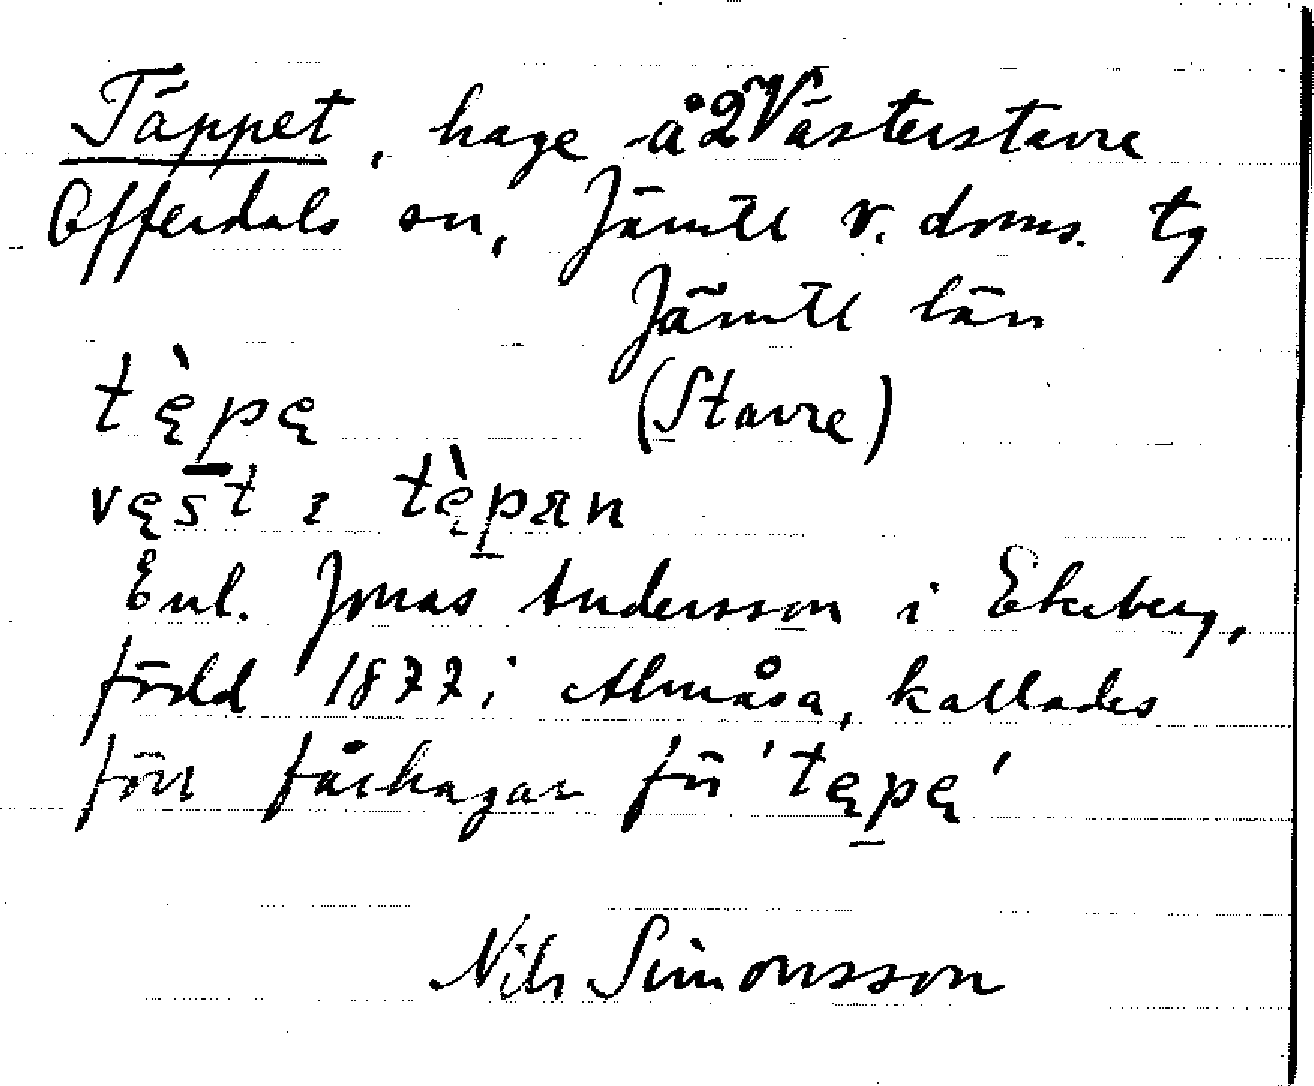 Täppet, hage å 2 Västerstavre
Offerdals sn, Jämtl v. doms. tg
Jämtl län
tę̀pę (Stavre)
vęst ı tę̀pan
Enl. Jonas Andersson i Ekeberg,
född 1877 i Almåsa, kallades
förr fårhagar för 'tępę'
Nils Simonsson